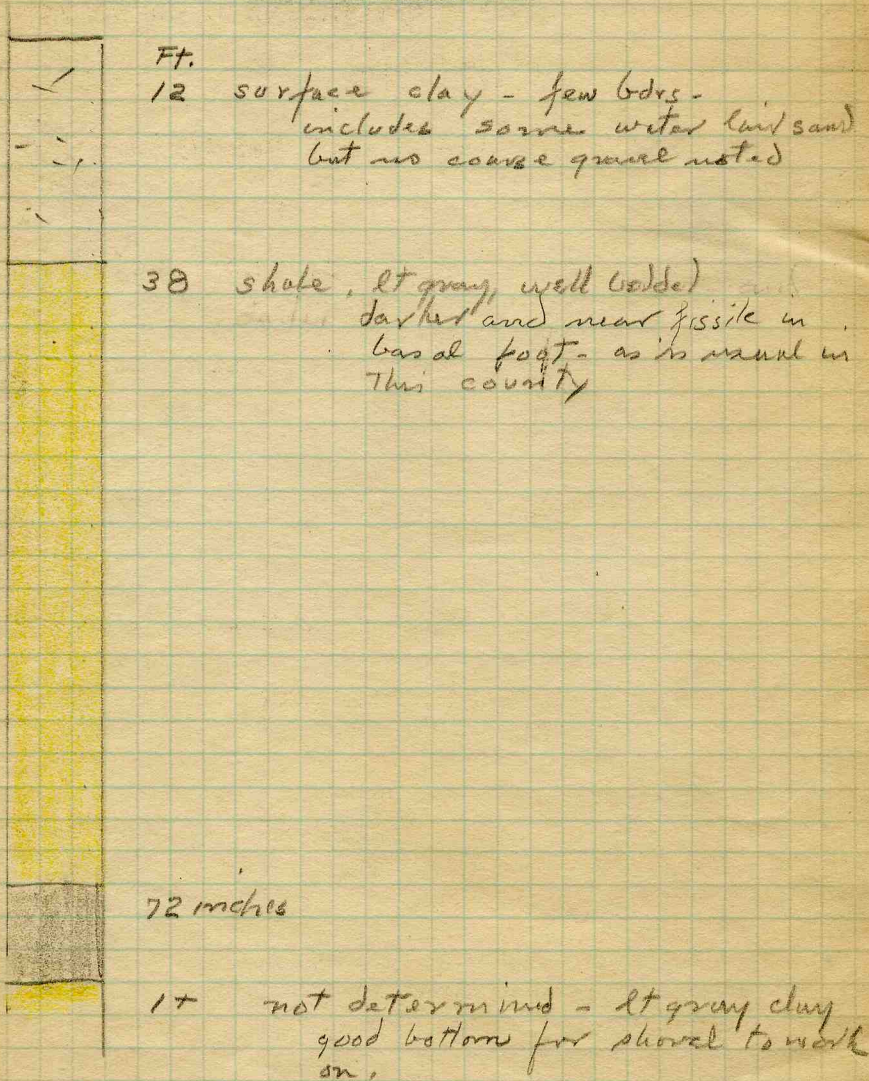 Ft.
12 surface clay - few bdrs -
includes some water laid sand
but no coarse gravel noted
38 shale, lt gray, well bedded
darker and near fissile in
basal foot - as is usual in
this county
72 inches
1+ not determined - lt gray clay
good bottom for shovel to work
on.